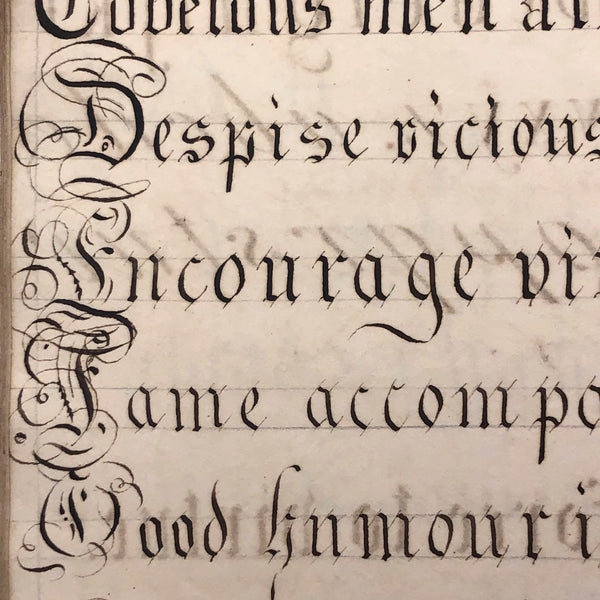 Covetous men a
Despise vicious
Encourage vi
Fame accompa
Good humour i